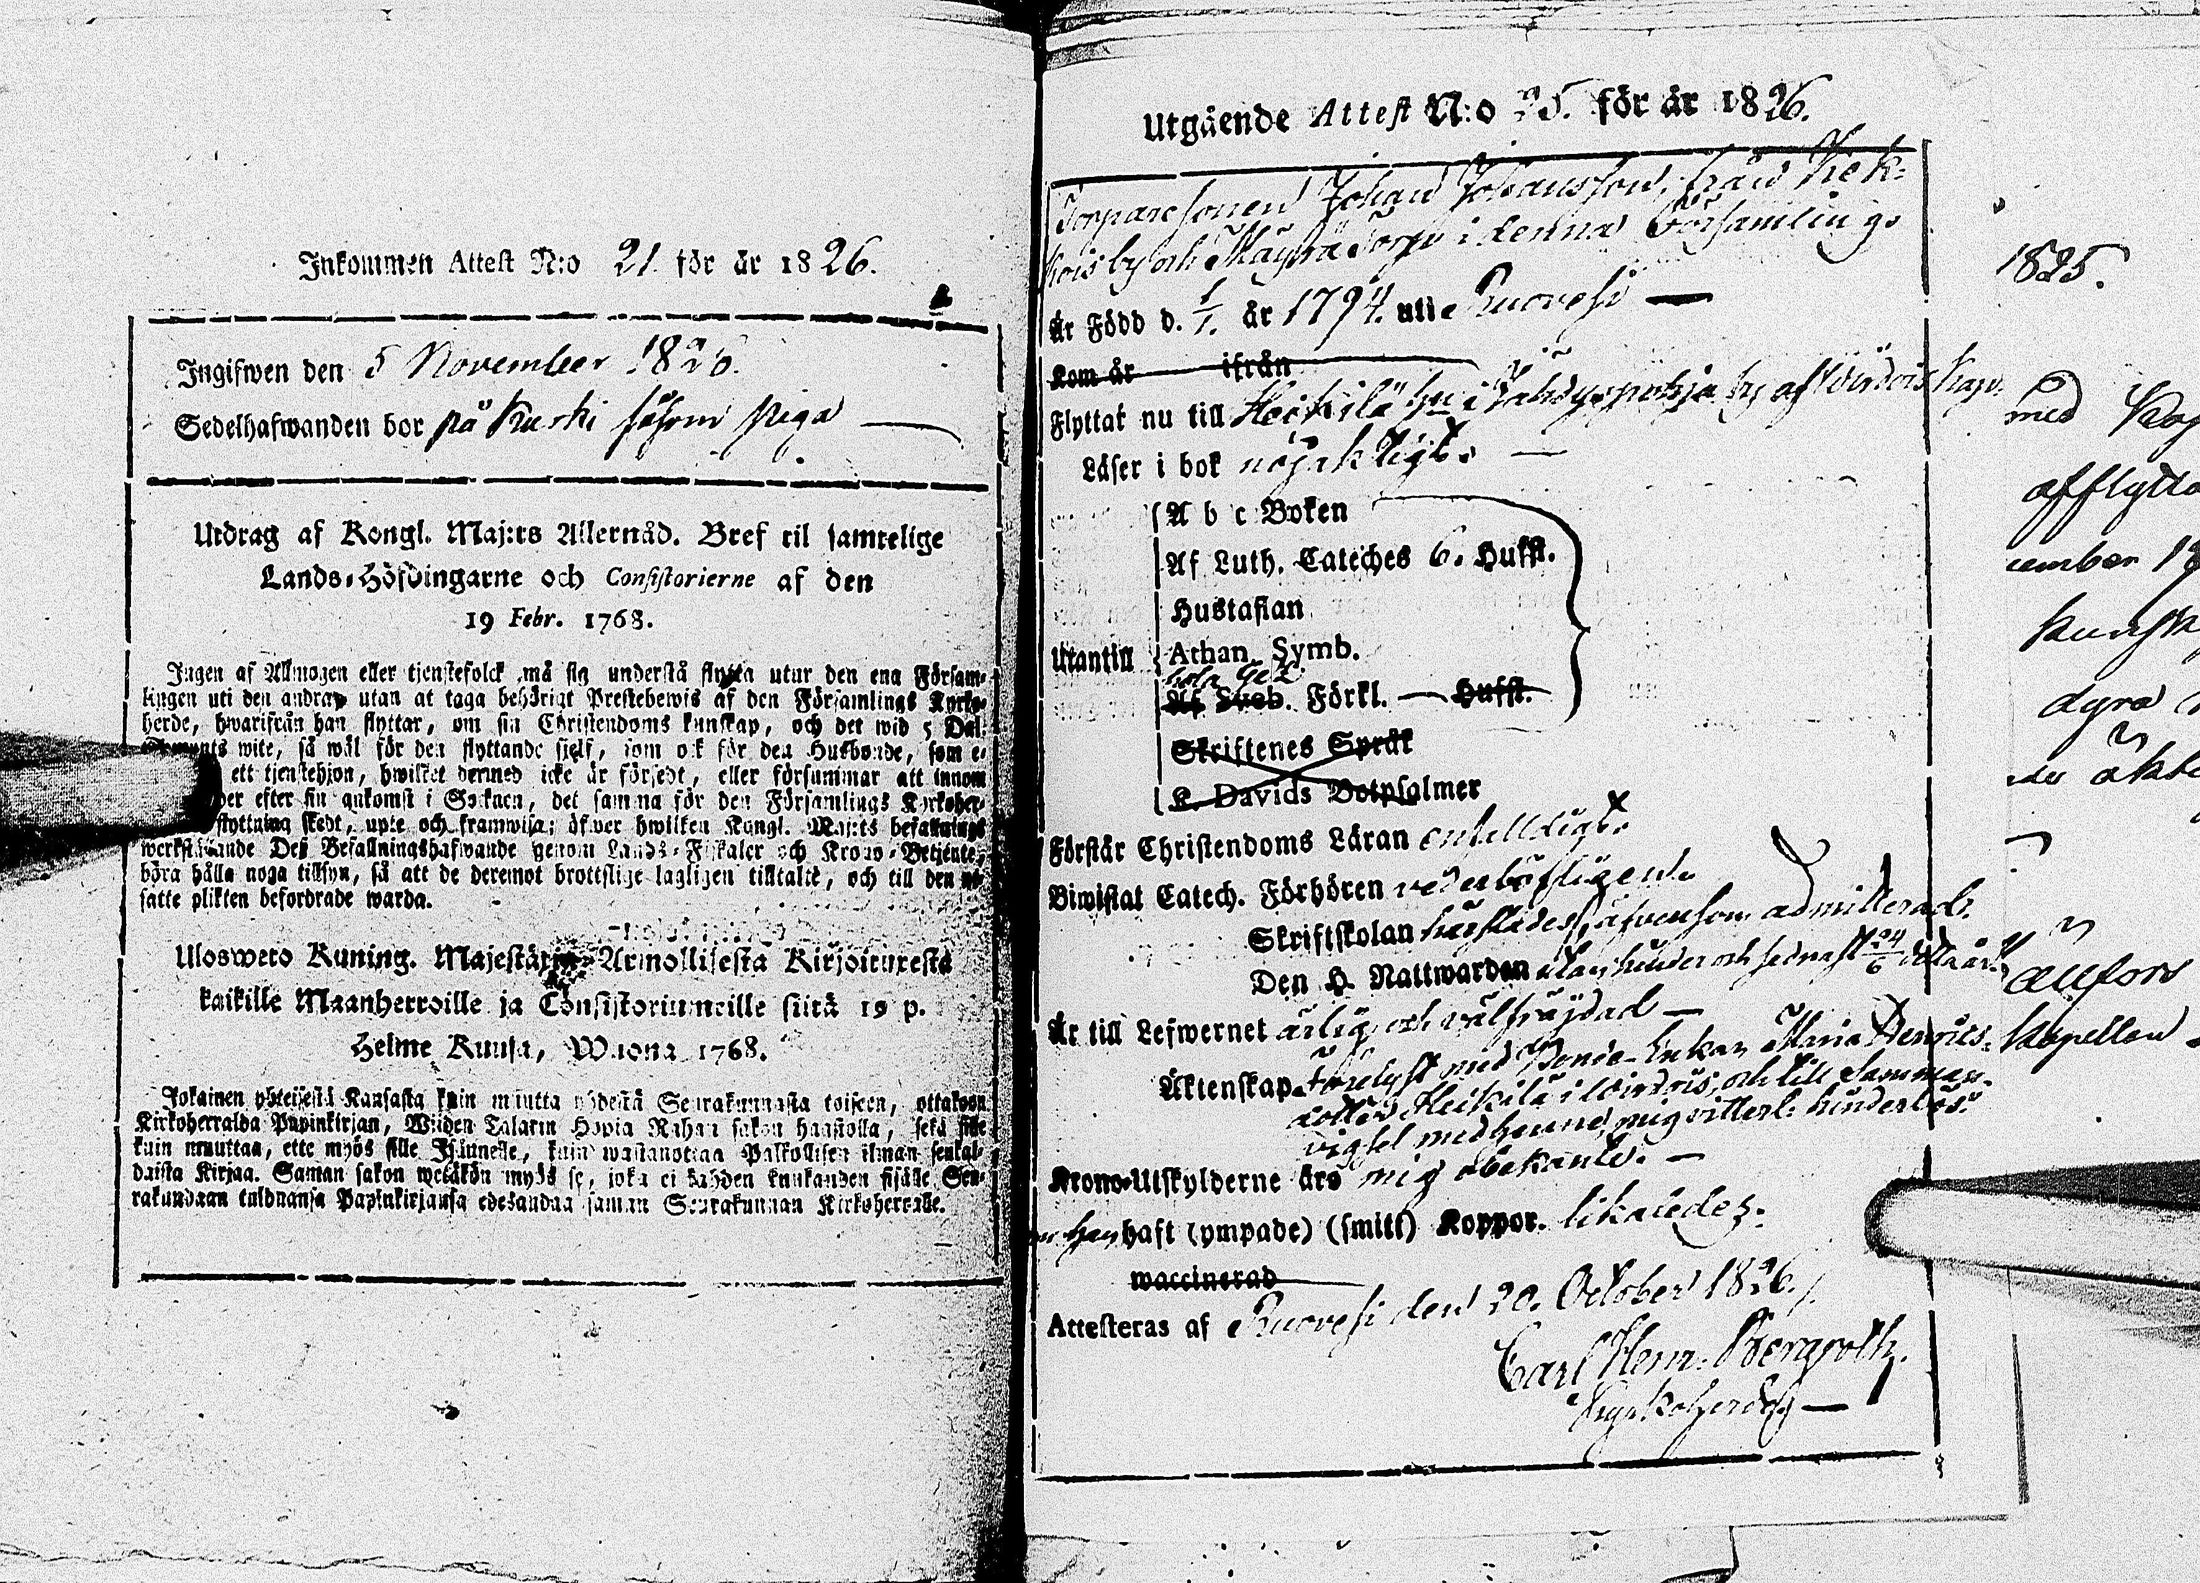 Inkommen Attest N:o 21. för år 1826.
Ingifwen den 5 November 1826.
Sedelhafwanden bor på Kurki såsom piga
Utdrag af Kongl. Maj:ts Allernåd. Bref til samtelige
Lands-Höfdingarne och Consistorierne af den
19 Febr. 1768.
Ingen af Allmogen eller tjenstefolck må sig understå flytta utur den ena Försam-
lingen uti den andra, utan at taga behörigt Prestebewis af den Församlings Kyrko-
herde, hwarifrån han flyttar, om sin Christendoms kunskap, och det wid 5 Dal.
wite, så wäl för den flyttande sielf, som ock för den Husbonde, som e-
ett tjenstehjon, hwilket dermed icke är försedt, eller försummar att innom
efter sin ankomst i Socknen, det samma för den Församlings Kyrkoher-
flyttning skedt, upte och framwisa; öfwer hwilken Kongl. Maj:ts befallnings
werkställande Deß Befallningshafwande genom Lands-Fiskaler och Krono-Betjente,
böra hålla noga tillsyn, så att de deremot brottslige lagligen tilltalte, och till den
satte plikten befordrade warda.
Uloswero Kuning. Majestätin Armollisesta Kirjoituxesta
kaikille Maanherroille ja Consistoriumeille siitä 19 p.
Helme Kuusa, Wuona 1768.
Jokainen yhteisestä Kansasta kuin muutta yhdestä Seurakunnasta toiseen, ottakoon
Kirkoherralda Papinkirjan, Wiiden Talarin Hopia Rahan sakon haastolla, sekä sille
kuin muuttaa, ette myös sille Isännelle, kuin wastanottaa Palkollisen ilman senkal-
daista Kirjaa. Saman sakon wetäkön myös se, joka ei kahden kuukauden sisälle Seu-
rakundaan tulduansa Papinkirjansa edesandaa saman Seurakunnan Kirkoherralle.
Utgående Attest N:o 25. för år 1826.
Torparesonen Johan Johansson, från Kek-
kois by och Mäyrä Torp i denna Församling.
Är Född d. 1/1. år 1794. uti Ruovesi
Kom år ifrån
Flyttat nu till Heikilä hn i by af Virdois Kap.
Läser i bok nöjaktigt.
A b c Boken
Af Luth. Cateches 6. Hufst.
Hustaflan
Utantill Athan. Symb.
hela Gez.
Af Sveb. Förkl. Hufst.
Skriftenes Språk
K. Davids Botpsalmer
Förstår Christendoms Läran enfalldigt.
Biwistat Catech. Förhören vederbörligen.
Skriftskolan härstädes, äfvensom admitterad.
Den H. Nattwarden utan hinder och sednast 24/6 detta år.
Är till Lefwernet ärlig och välfräjdad
Äktenskap. Förelyst med Bonde-Enkan Maria Henrics-
dotter Heikilä i Virdois, och till samman-
vigsel med henne, mig vitterl. hinderlös.
Krono-Utskylderne äro mig obekante.
Om han haft (ympade) (smitt) Koppor. likaledes.
waccinerad
Attesteras af Ruovesi den 20. October 1826.
Carl Henr. Bergroth.
Kyrkoherde
1825.
med Kap
afflytta
cember 18
kunsk
dyra
ällfors
Kapellan